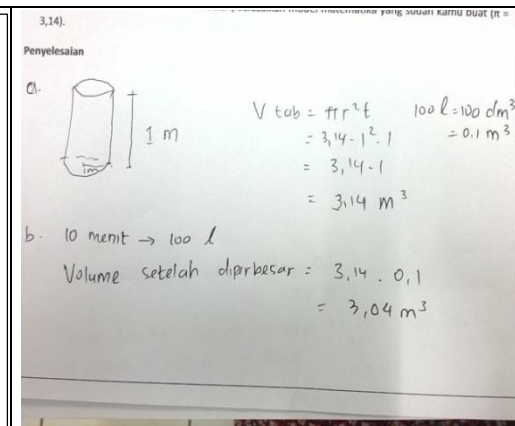 matematika yang sudah kamu buat (π =
3,14).
Penyelesaian
a.
1 m
1m
V tab = πr²t
= 3,14 - 1² . 1
= 3,14 . 1
= 3,14 m³
100 l = 100 dm³
= 0.1 m³
b. 10 menit → 100 l
Volume setelah diperbesar = 3,14 . 0,1
= 3,04 m³